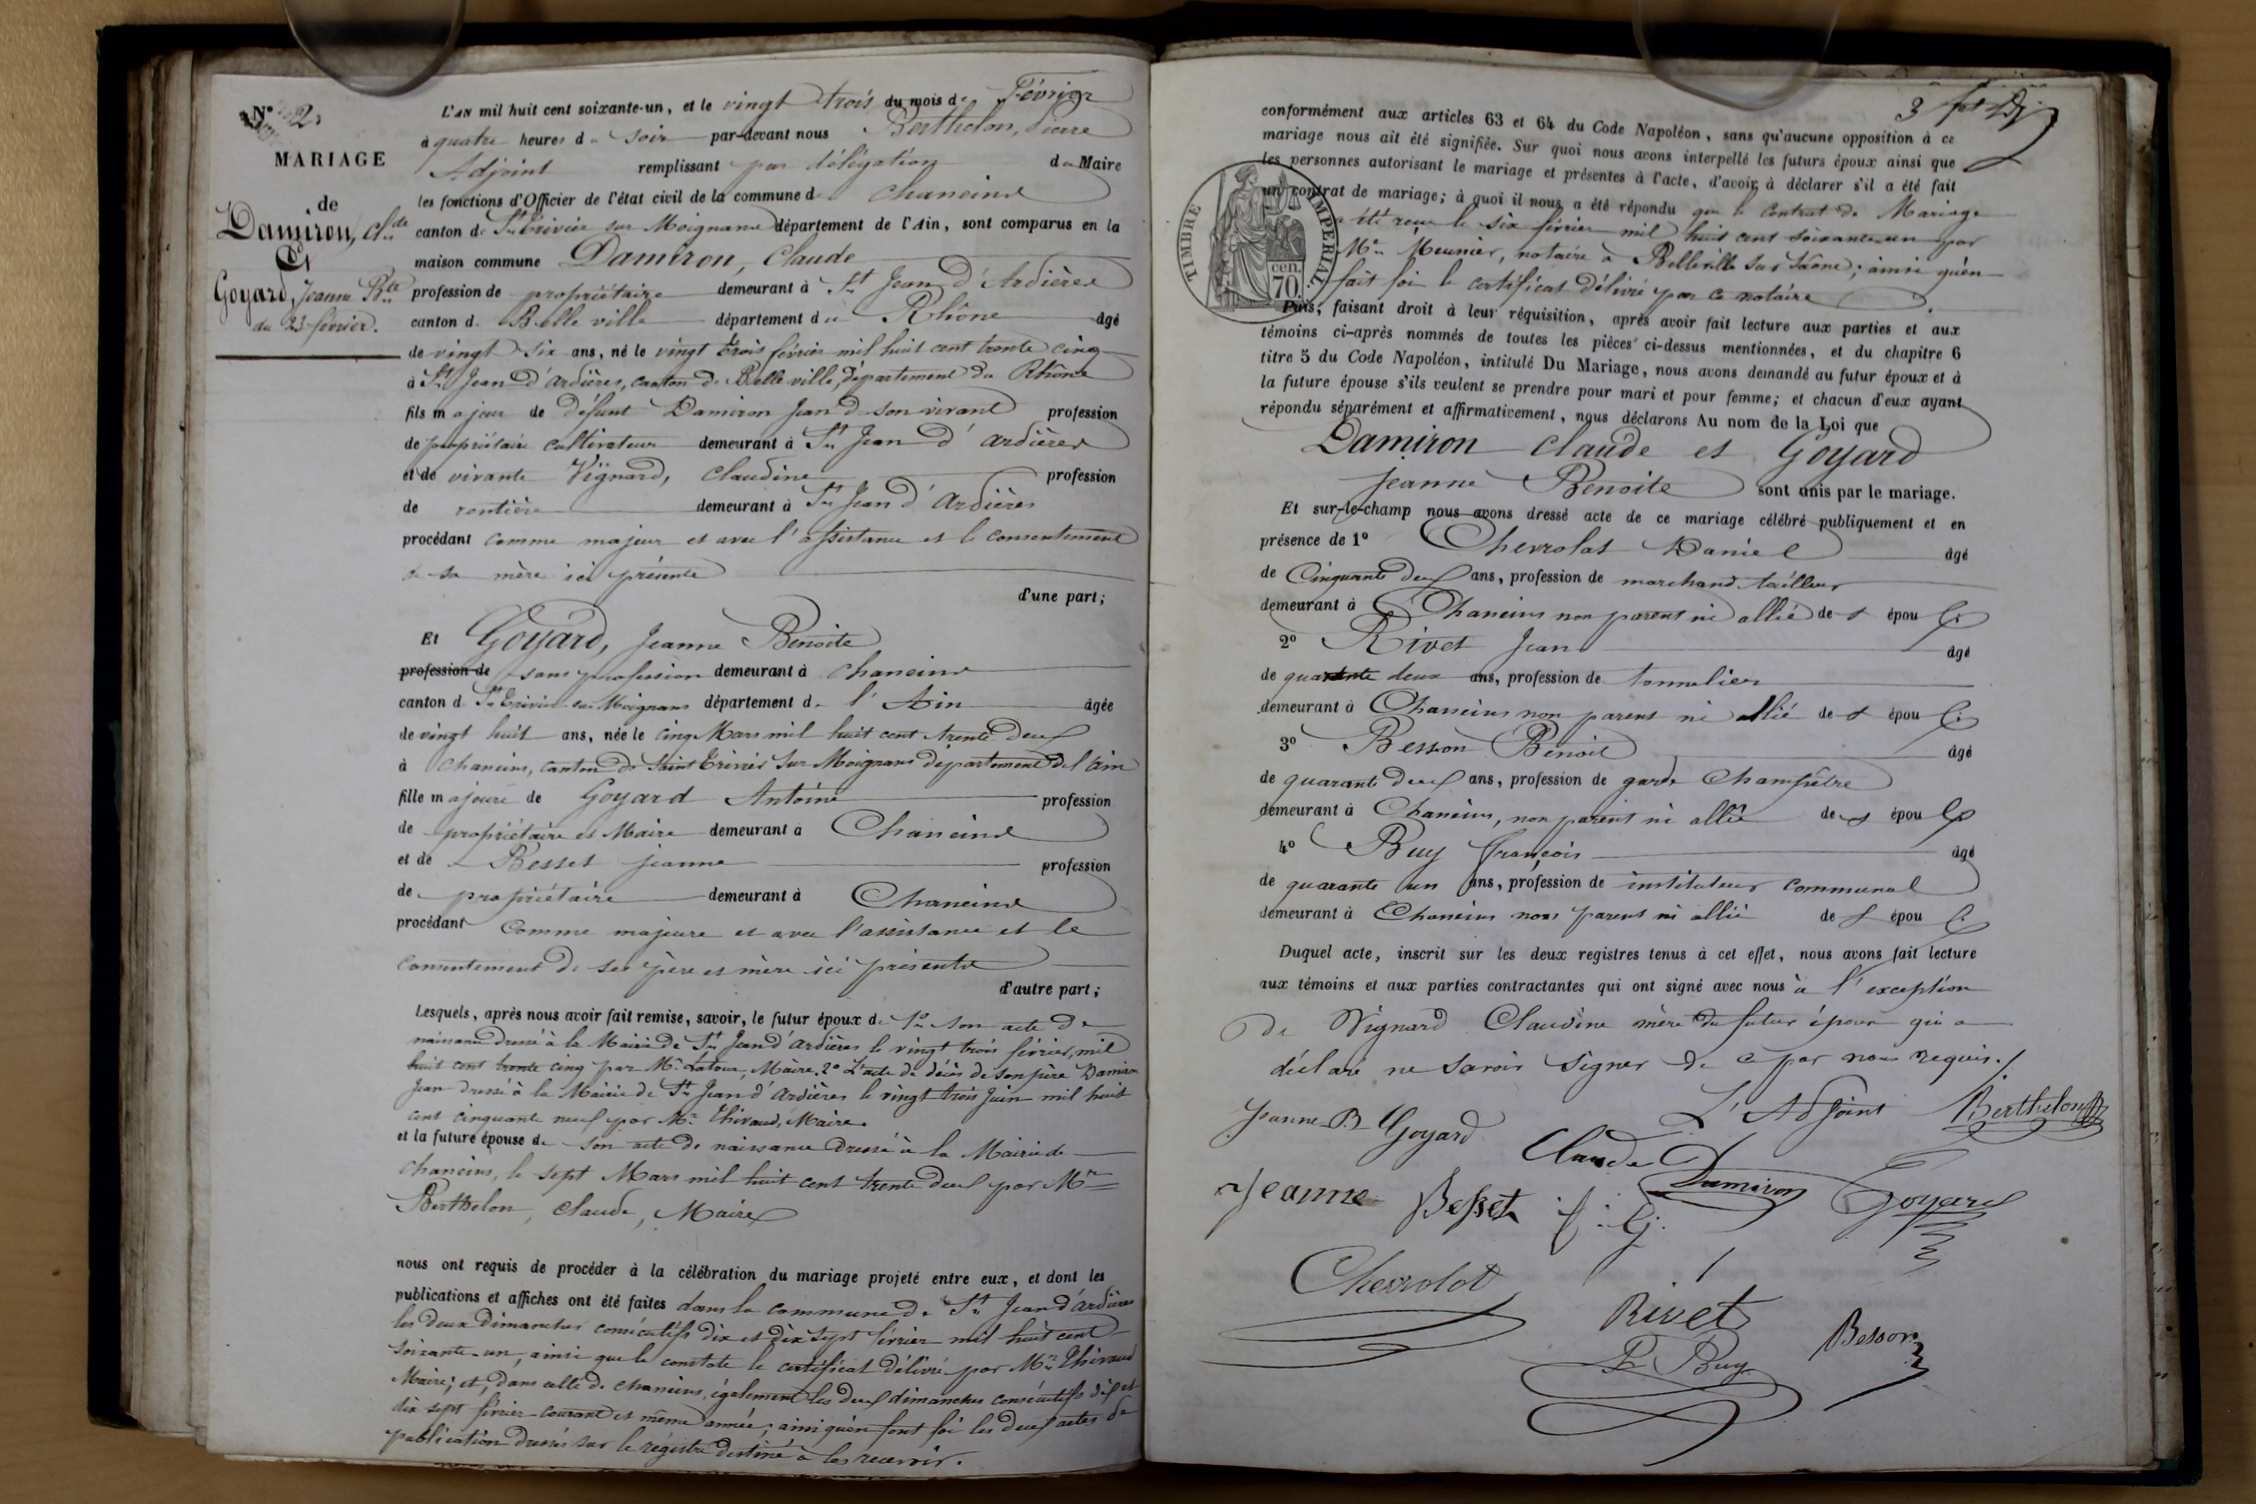 N° 2.
MARIAGE
de
Damiron, Cl.de
Et
Goyard, Jeanne B.te
du 23 février.
L'AN mil huit cent soixante-un, et le vingt trois du mois de Février
à quatre heures du soir par-devant nous Berthelon, Pierre
Adjoint remplissant par délégation du Maire
les fonctions d'Officier de l'état civil de la commune de Chaneins
canton de St Trivier sur Moignans département de l'Ain, sont comparus en la
maison commune Damiron, Claude
profession de propriétaire demeurant à St Jean d'Ardières
canton de Belleville département du Rhône âgé
de vingt six ans, né le vingt trois février mil huit cent trente cinq
à St Jean d'Ardières, canton de Belleville, département du Rhône
fils majeur de défunt Damiron Jean de son vivant profession
de propriétaire cultivateur demeurant à St Jean d'Ardières
et de vivante Vignard, Claudine profession
de rentière demeurant à St Jean d'Ardières
procédant comme majeur et avec l'assistance et le consentement
de sa mère ici présente
d'une part;
Et Goyard, Jeanne Benoite
profession de sans profession demeurant à Chaneins
canton de St Trivier sur Moignans département de l'Ain âgée
de vingt huit ans, née le cinq Mars mil huit cent trente deux
à Chaneins, canton de Saint Trivier sur Moignans département de l'Ain
fille majeure de Goyard Antoine profession
de propriétaire et Maire demeurant à Chaneins
et de Besset Jeanne profession
de propriétaire demeurant à Chaneins
procédant comme majeure et avec l'assistance et le
consentement de ses père et mère ici présents
d'autre part;
Lesquels, après nous avoir fait remise, savoir, le futur époux de 1° son acte de
naissance dressé à la Mairie de St Jean d'Ardières le vingt trois février, mil
huit cent trente cinq par Mr Latour, Maire. 2° L'acte de décès de son père Damiron
Jean dressé à la Mairie de St Jean d'Ardières le vingt trois Juin mil huit
cent cinquante neuf par Mr Thivaud, Maire.
et la future épouse de son acte de naissance dressé à la Mairie de
Chaneins, le sept Mars mil huit cent trente deux par Mr
Berthelon, Claude, Maire
nous ont requis de procéder à la célébration du mariage projeté entre eux, et dont les
publications et affiches ont été faites dans la commune de St Jean d'Ardières
les deux dimanches consécutifs dix et dix sept février mil huit cent
soixante-un, ainsi que le constate le certificat délivré par Mr Thivaud
Maire; et, dans celle de Chaneins, également les deux dimanches consécutifs dix et
dix sept février courant et même année; ainsi qu'en font foi les deux actes de
publication dressés sur le registre destiné à les recevoir.
3
conformément aux articles 63 et 64 du Code Napoléon, sans qu'aucune opposition à ce
mariage nous ait été signifiée. Sur quoi nous avons interpellé les futurs époux ainsi que
les personnes autorisant le mariage et présentes à l'acte, d'avoir à déclarer s'il a été fait
un contrat de mariage; à quoi il nous a été répondu que le contrat de Mariage
a été reçu le six février mil huit cent soixante-un par
Mr Meunier, notaire à Belleville sur Saône; ainsi qu'en
fait foi le certificat délivré par ce notaire
TIMBRE IMPERIAL
70 cen.
Puis, faisant droit à leur réquisition, après avoir fait lecture aux parties et aux
témoins ci-après nommés de toutes les pièces ci-dessus mentionnées, et du chapitre 6
titre 5 du Code Napoléon, intitulé Du Mariage, nous avons demandé au futur époux et à
la future épouse s'ils veulent se prendre pour mari et pour femme; et chacun d'eux ayant
répondu séparément et affirmativement, nous déclarons Au nom de la Loi que
Damiron Claude et Goyard
Jeanne Benoite sont unis par le mariage.
Et sur-le-champ nous avons dressé acte de ce mariage célébré publiquement et en
présence de 1° Chevrolat Daniel âgé
de Cinquante deux ans, profession de marchand tailleur
demeurant à Chaneins non parent ni allié des époux
2° Rivet Jean âgé
de quarante deux ans, profession de tonnelier
demeurant à Chaneins non parent ni allié des époux
3° Besson Benoit âgé
de quarante deux ans, profession de garde Champêtre
demeurant à Chaneins, non parent ni allié des époux
4° Buy François âgé
de quarante un ans, profession de instituteur communal
demeurant à Chaneins non parent ni allié des époux
Duquel acte, inscrit sur les deux registres tenus à cet effet, nous avons fait lecture
aux témoins et aux parties contractantes qui ont signé avec nous à l'exception
de Vignard Claudine mère du futur époux qui a
déclaré ne savoir signer de ce par nous requis./.
Jeanne B Goyard L'Adjoint Berthelon
Claude Damiron
Jeanne Besset f. G. Goyard
Chevrolot
Rivet
Besson
Buy